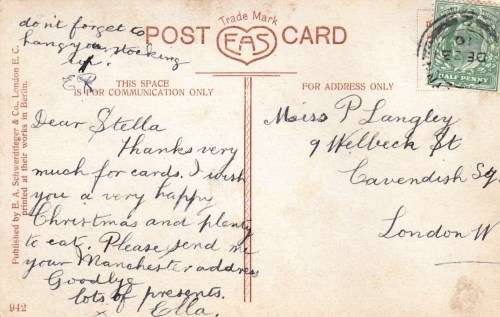 don't forget to
hang your stocking
up.
ER
Trade Mark
POST CARD
EAS
HALF PENNY
DE 23
THIS SPACE
IS FOR COMMUNICATION ONLY
FOR ADDRESS ONLY
Dear Stella
Thanks very
much for cards. I wish
you a very happy
Christmas and plenty
to eat. Please send me
your Manchester address
Goodbye
lots of presents.
Ella.
x
Miss P Langley
9 Welbeck St
Cavendish Sq.
London W
Published by B. A. Schwerdtfeger & Co., London E. C.
printed at their works in Berlin.
942